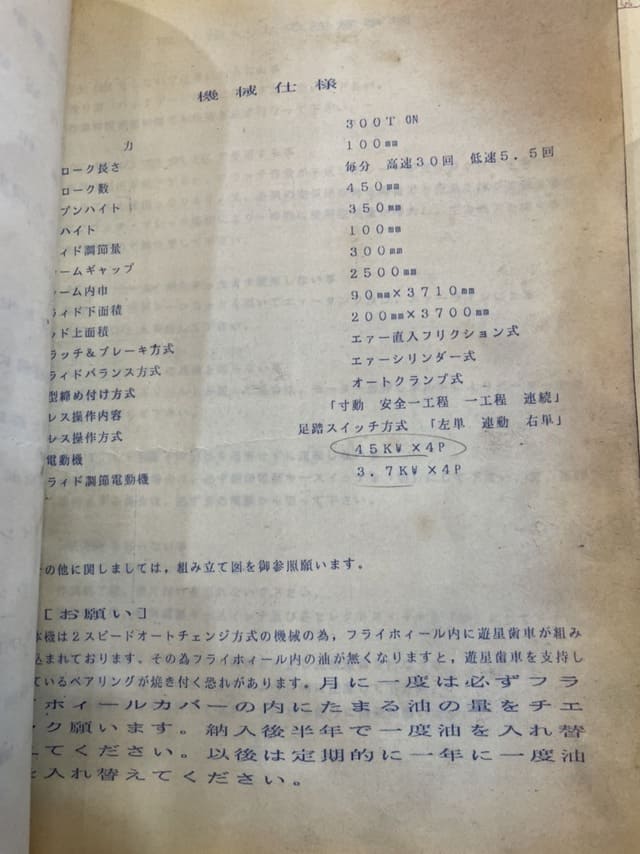 機械仕様
力 300TON
ローク長さ 100mm
ローク数 毎分 高速30回 低速5.5回
プンハイト 450mm
ハイト 350mm
イド調節量 100mm
ームギャップ 300mm
ーム内巾 2500mm
ライド下面積 90mm×3710mm
ッド上面積 200mm×3700mm
ラッチ&ブレーキ方式 エァー直入フリクション式
ライドバランス方式 エァーシリンダー式
型締め付け方式 オートクランプ式
レス操作内容 「寸動 安全一工程 一工程 連続」
レス操作方式 足踏スイッチ方式 「左単 連動 右単」
電動機 45KW×4P
ライド調節電動機 3.7KW×4P
の他に関しましては,組み立て図を御参照願います。
[お願い]
本機は2スピードオートチェンジ方式の機械の為,フライホィール内に遊星歯車が組み
込まれております。その為フライホィール内の油が無くなりますと,遊星歯車を支持し
ているベアリングが焼き付く恐れがあります。月に一度は必ずフラ
ホィールカバーの内にたまる油の量をチェ
ク願います。納入後半年で一度油を入れ替
えてください。以後は定期的に一年に一度油
を入れ替えてください。